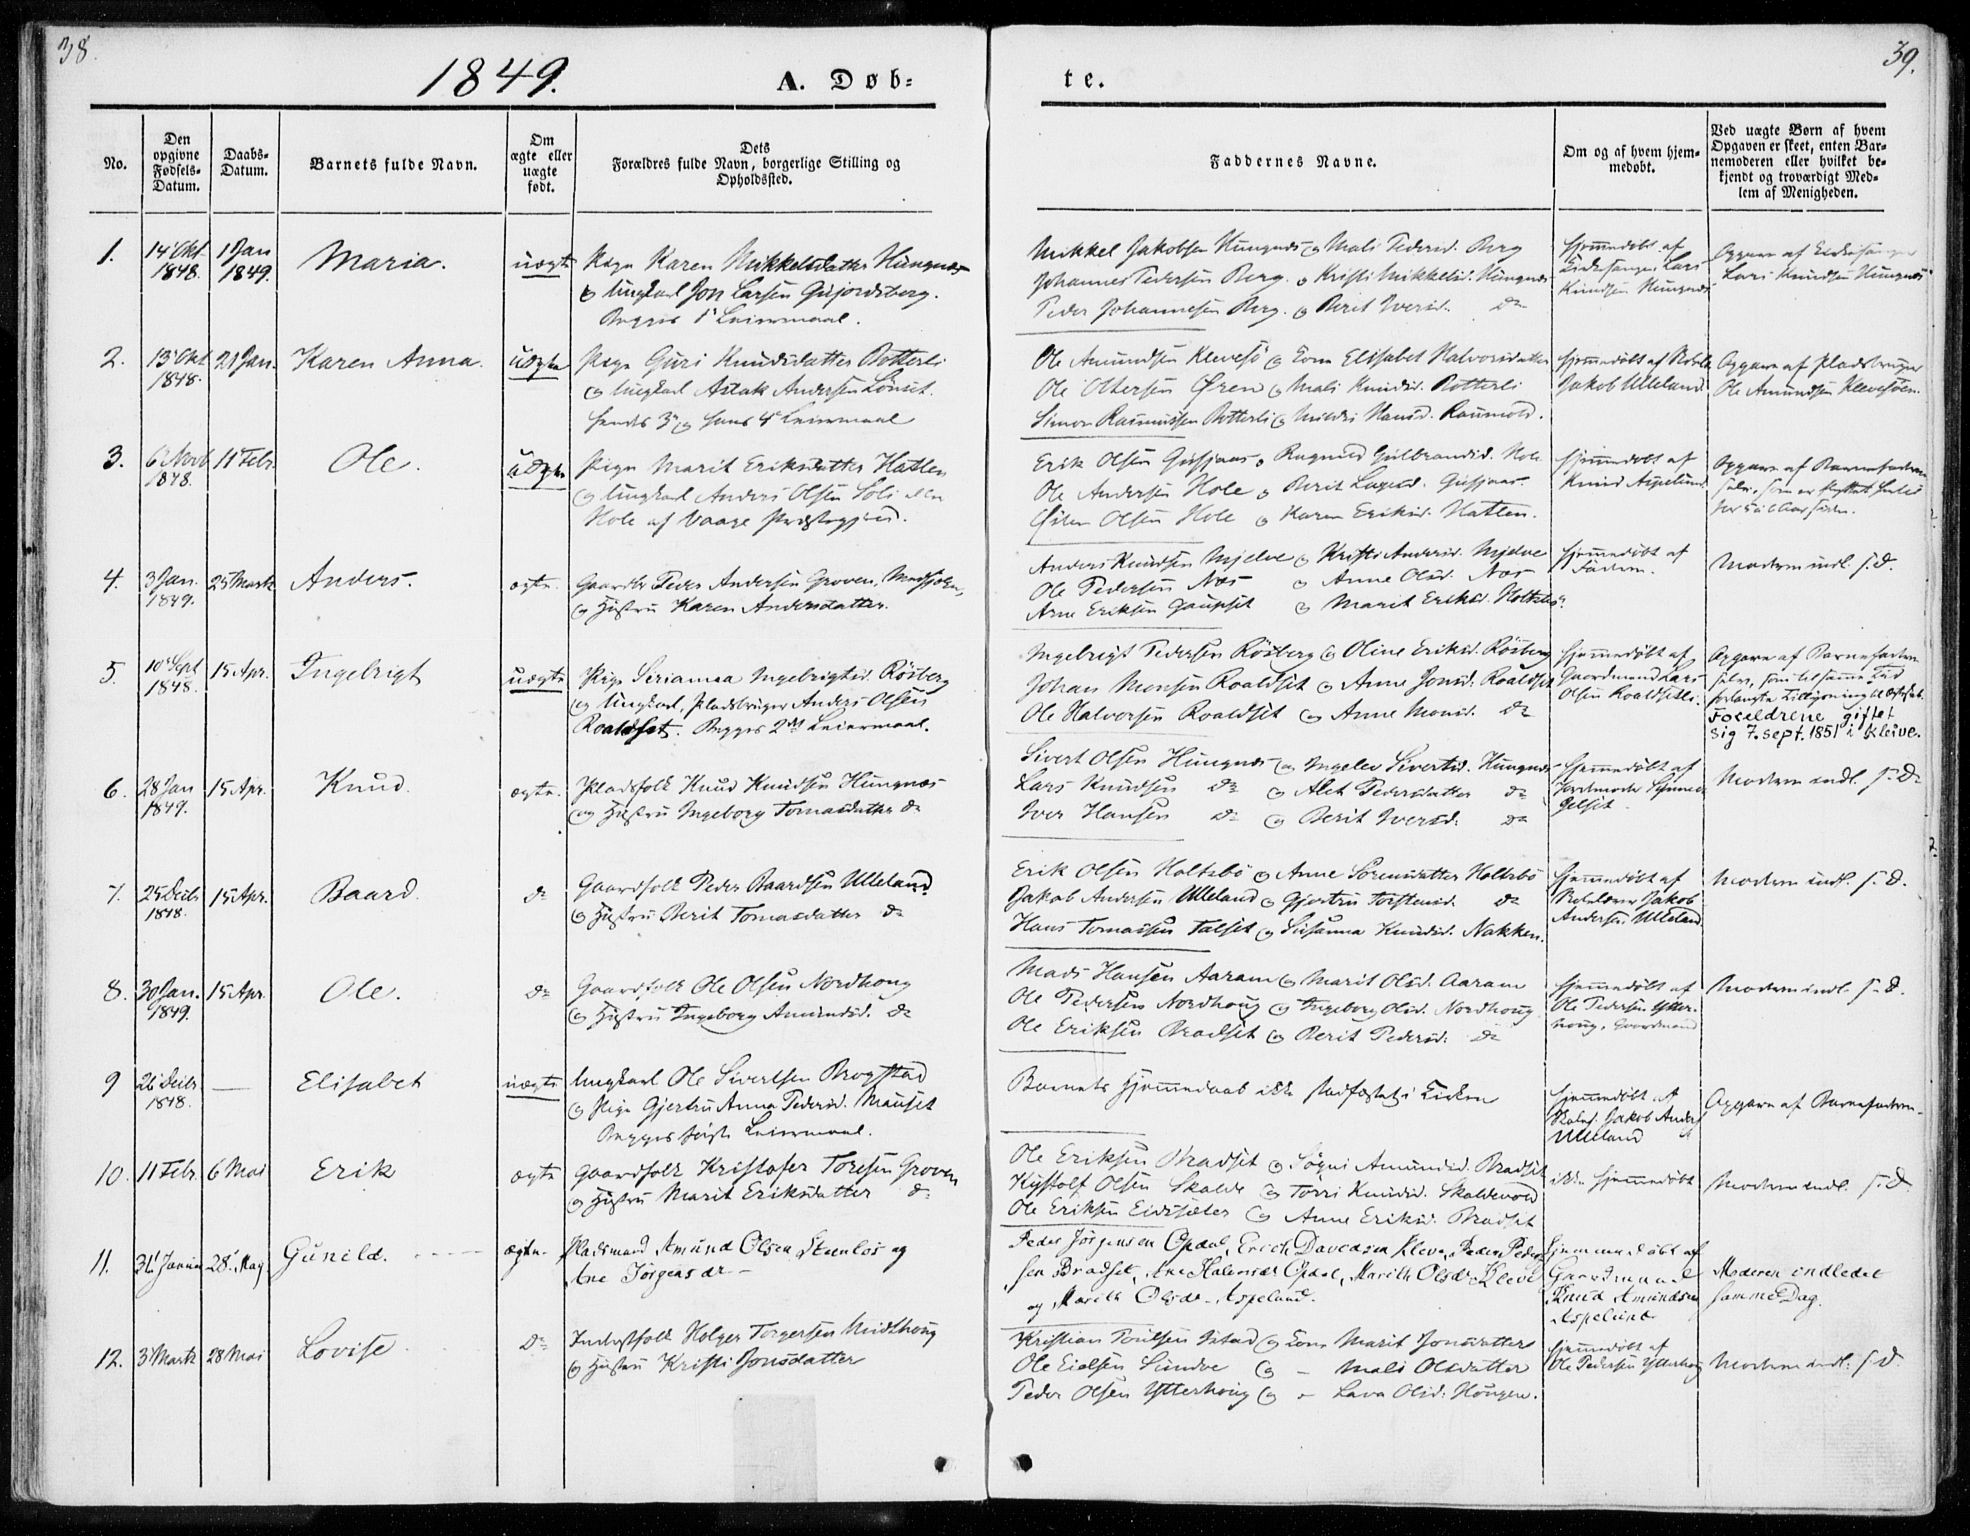 38.
39.
1849.
A. Døb-
te.
No.
Den opgivne Fødsels-Datum.
Daabs-Datum.
Barnets fulde Navn.
Om ægte eller uægte født.
Dets Forældres fulde Navn, borgerlige Stilling og Opholdssted.
Faddernes Navne.
Om og af hvem hjem-
medøbt.
Ved uægte Børn af hvem
Opgaven er skeet, enten Bar-
nemoderen eller hvilket be-
kjendt og troværdigt Med-
lem af Menigheden.
1. 14 Okt 1848. 1 Jan 1849. Maria. uægte Pige Karen Mikkelsdatter Hungnes
& Ungkarl Jon Larsen Gujordsberg.
Begges 1ste Leiermaal.
Mikkel Jakobsen Hungnes & Mali Pedersd. Berg
Johannes Pedersen Berg & Kristi Mikkelsd. Hungnes
Peder Johannesen Berg & Berit Iversd. do
Hjemmedøbt af
Kirkesanger Lars
Knudsen Hungnes
Opgave af Kirkesanger
Lars Knudsen Hungnes
2. 13 Okt 1848. 21 Jan. Karen Anna. uægte Pige Guri Knudsdatter Botterli
& Ungkarl Aslak Andersen Lønset.
hendes 3die & hans 4de Leiermaal
Ole Amundsen Klevesø & Kone Elisabet Halvorsdatter
Ole Ottersen Øren & Mali Knudsd. Botterli
Simon Rasmussen Botterli & Mildri Hansd. Raumold.
Hjemmedøbt af
Jakob Ulleland.
Opgave af Pladsbruger
Ole Amundsen Klevesøen.
3. 6 Novb 1848. 11 Febr. Ole. uægte Pige Marit Eriksdatter Hatlen
& Ungkarl Anders Olsen Soli eller
Hole af Vaage Præstegjeld.
Erik Olsen & Ragnild Gulbrandsd. Hole
Ole Andersen Hole & Berit
Olsen Hole & Karen Eriksd. Hatlen.
Hjemmedøbt af
Knud Aspelund
Opgave af Barnefaderen
selv, som er
4. 3 Jan. 1849. 25 Marts Anders. ægte. Gaardbr Peder Andersen Groven,
& Hustru Karen Andersdatter.
Anders Knudsen Mjelve & Kristi Andersd. Mjelve
Ole Pedersen Næs & Anne Olsd. Næs
Arne Eriksen Gaupset & Marit Eriksd. Holtsbø.
Hjemmedøbt af
Faderen.
Moderen indl. s. D.
5. 10 Sept 1848. 15 Apr. Ingebrigt uægte Pige Serianna Ingebrigtsd. Rösberg
& Ungkarl, Pladsbruger Anders Olsen
Roaldset. Begges 2det Leiermaal.
Ingebrigt Pedersen Rösberg & Oline Eriksd. Rösberg
Johan Monsen Roaldset & Anne Jonsd. Roaldset
Ole Halvorsen Roaldset & Anne Monsd. do
Hjemmedøbt af
Gaardmand Lars
Olsen Roaldsetli.
Opgave af Barnefaderen
selv, som til samme Tid
forlangte Tillysning til Ægteskab.
Foreldrene giftet
sig 7. sept. 1851 i Kleive.
6. 28 Jan 1849. 15 Apr. Knud. ægte. Pladsfolk Knud Knudsen Hungnes
& Hustru Ingeborg Tomasdatter do
Sivert Olsen Hungnes & Ingelev Sivertsd. Hungnes
Lars Knudsen do & Alet Pedersdatter do
Iver Hansen do & Berit Iversd. do
Hjemmedøbt af
Jordmoder
Gelset.
Moderen indl. s. D.
7. 25 Decbr 1848. 15 Apr. Baard. do Gaardfolk Peder Baardsen Ulleland
& Hustru Berit Tomasdatter do
Erik Olsen Holtsbø & Anne Sörensdatter Holtsbø
Jakob Andersen Ulleland & Gjertru Torstensd. do
Hans Tomassen Talset & Susanna Knudsd. Nakken.
Hjemmedøbt af
Skolelærer Jakob
Andersen Ulleland
Moderen indl. s. D.
8. 30 Jan. 1849. 15 Apr. Ole. do Gaardfolk Ole Olsen Nordhoug
& Hustru Ingeborg Amundsd. do
Mads Hansen Aaram & Marit Olsd. Aaram
Ole Pedersen Nordhoug & Ingeborg Olsd. Nordhoug
Ole Eriksen Bradset & Berit Pedersd. do
Hjemmedøbt af
Ole Pedersen Ytter-
houg, Gaardmand
Moderen indl. s. D.
9 26 Decbr 1848. — Elisabet uægte Ungkarl Ole Sivertsen Brogstad
& Pige Gjertru Anna Pedersd. Mauset
Begges første Leiermaal.
Barnets Hjemmedaab ikke stadfæstet i Kirken
Hjemmedøbt af
Skolel. Jakob Anders
Ulleland
Opgave af Barnefaderen.
10. 11 Febr. 6 Mai Erik ægte Gaardfolk Kristofer Toresen Groven
& Hustru Marit Eriksdatter do
Ole Eriksen Bradset & Sögni Amundsd. Bradset
Kristofer Olsen Skalde & Torri Knudsd. Skaldevold
Ole Eriksen Eidssæter & Anne Eriksd. Bradset
ikke hjemmedøbt
Moderen indl. s. D.
11. 31 Januar 28 May Gunild. ægte. Pladsmand Amund Olsen Stenløs og
Ane Jørgensdr —
Peder Jørgensen Opdal, Erich Davedsen Kleve, Peder Peder-
sen Bradset, Ane Halvorsdr Opdal, Marith Olsdr Kleve
og Marith Olsdr Aspelund.
Hjemmedøbt af
Gaardmand
Knud Amundsen
Aspelund.
Moderen indledet
samme Dag.
12. 3 Marts 28 Mai Lovise. do Inderstfolk Holger Torgersen Midthoug
& Hustru Kristi Jonsdatter
Kristian Poulsen Istad & Kone Marit Jonsdatter
Ole Eielsen Sundve & — Mali Olsdatter
Peder Olsen Ytterhoug & — Lava Olsd. Hougen.
Hjemmedøbt af
Ole Pedersen Ytterhoug
Moderen indl. s. D.